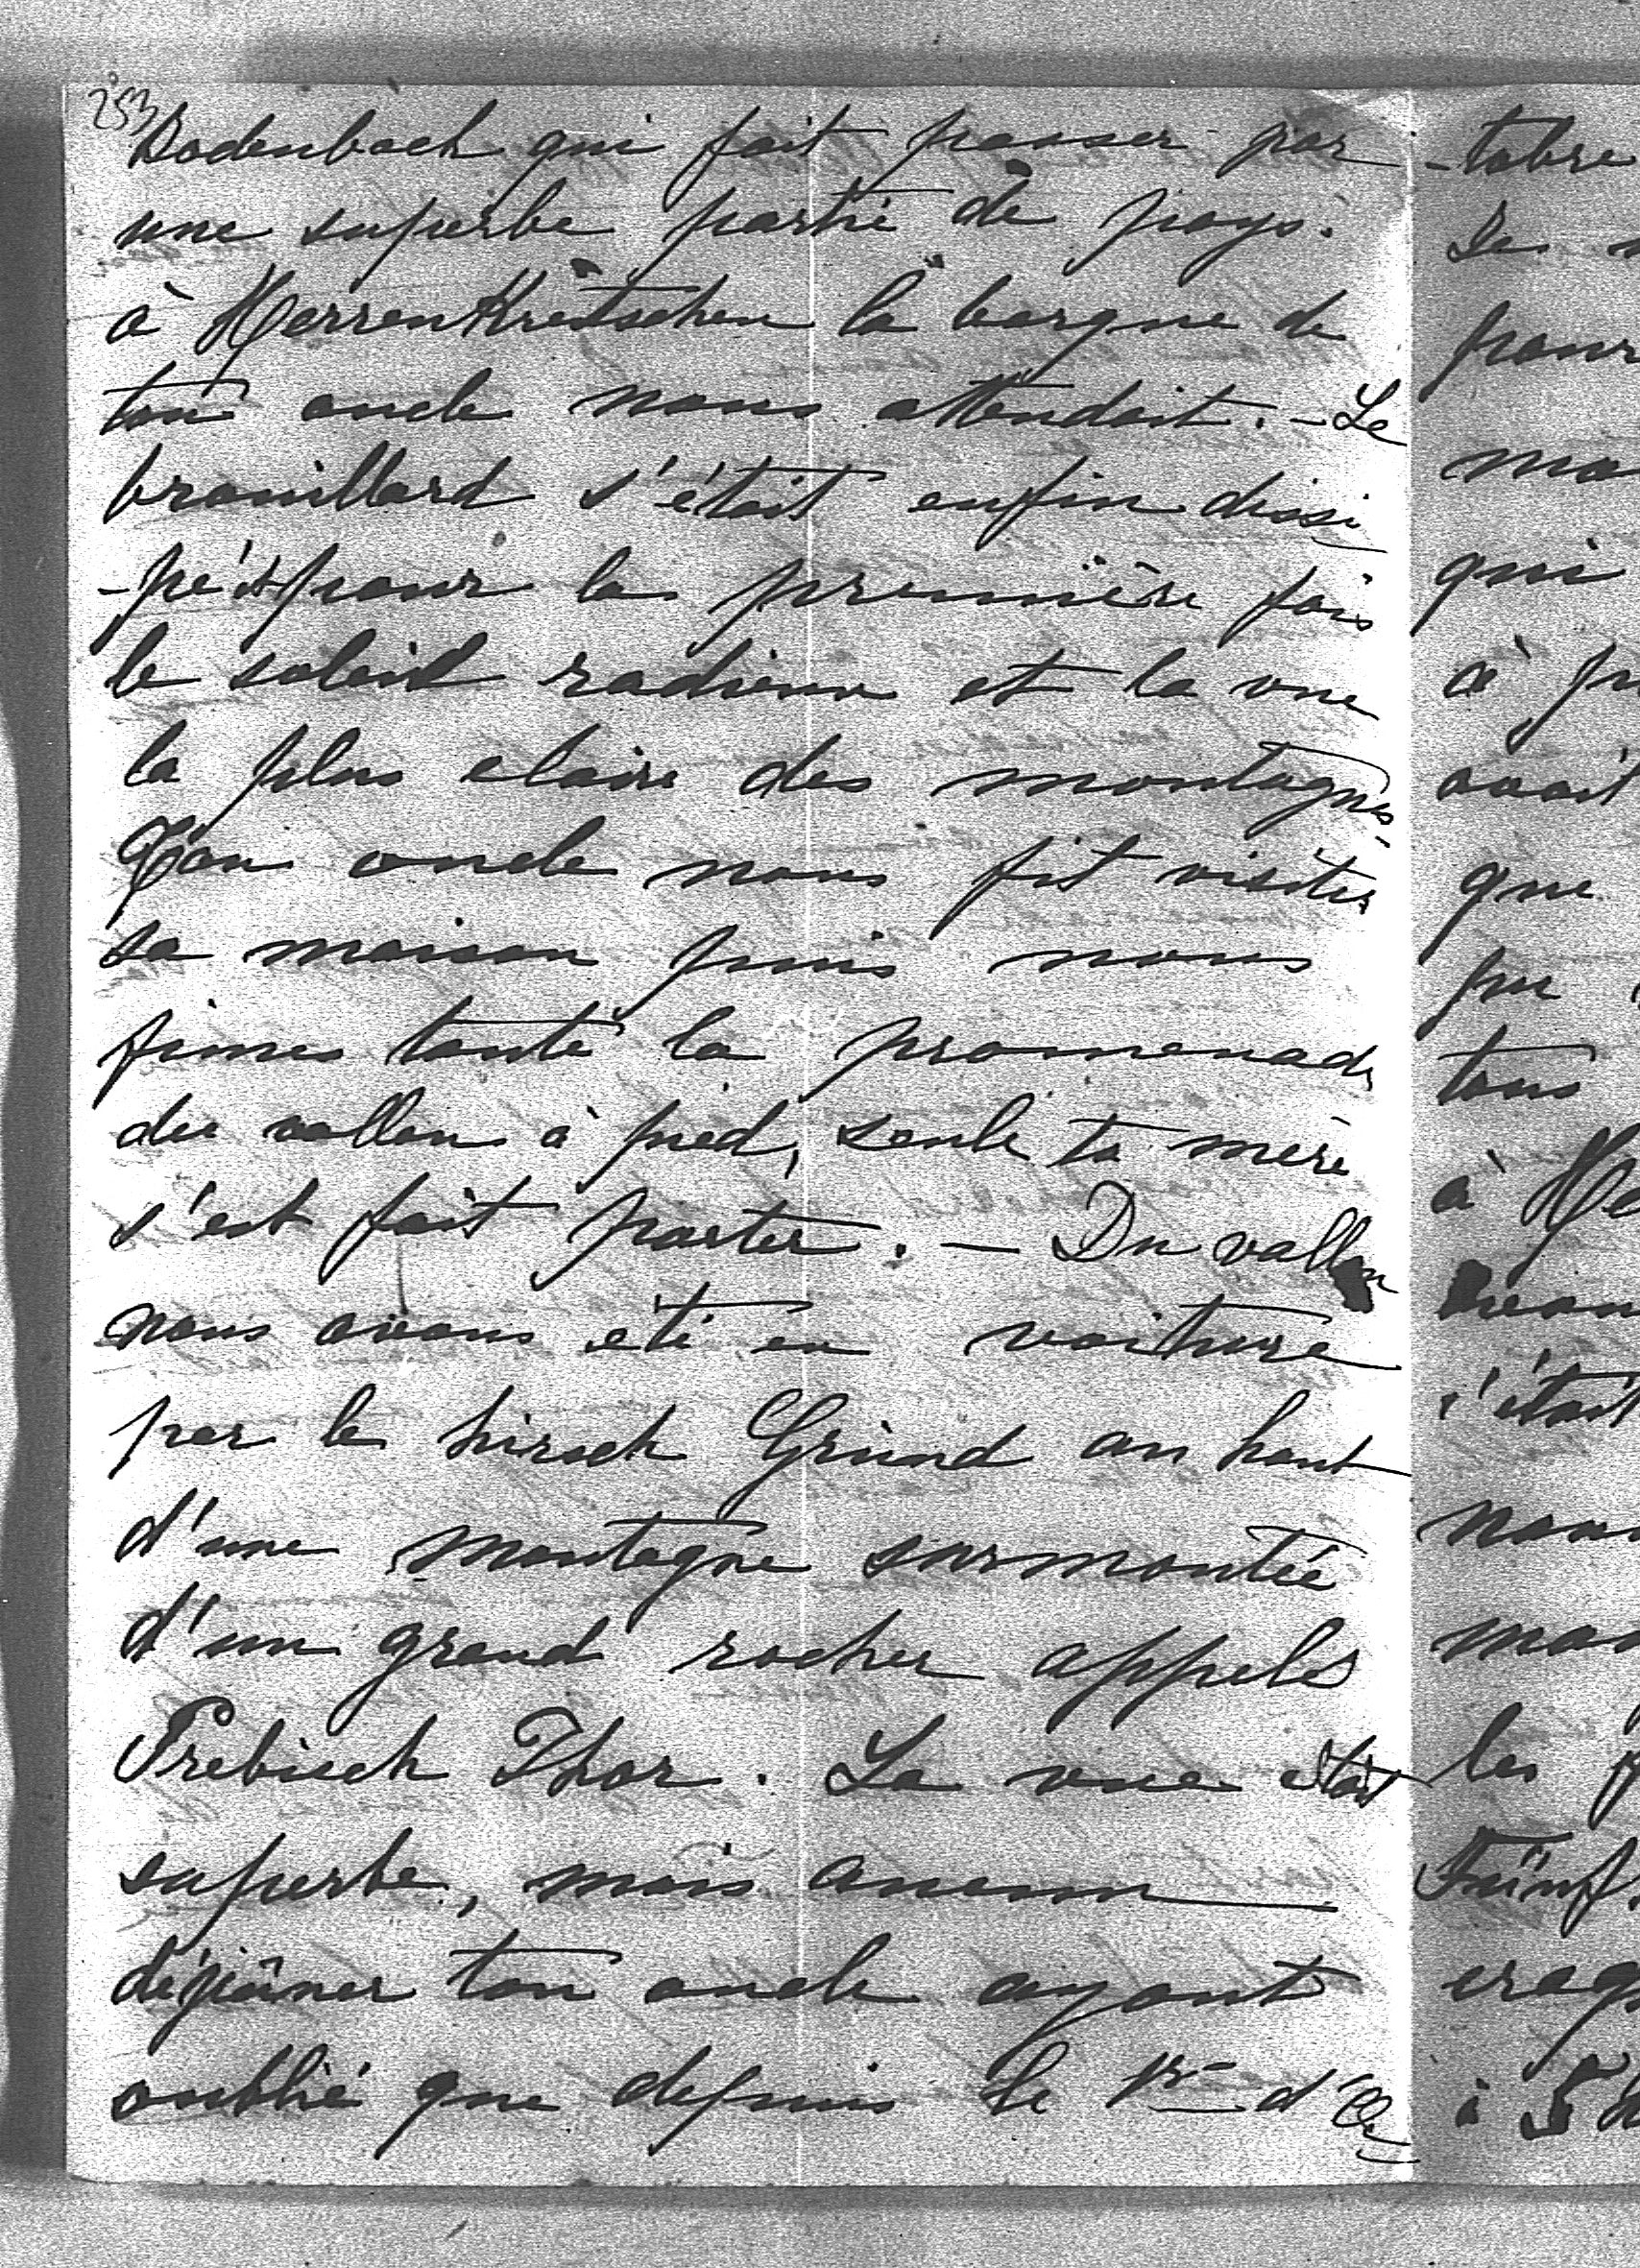 253
Bodenbach qui fait passer par
une superbe partie de pays.
à Herrenkretschen la barque de
ton oncle nous attendait. – Le
brouillard s'était enfin dissi
-pé et pour la première fois
le soleil radieux et la vue
la plus claire des montagnes.
Ton oncle nous fit visiter
sa maison puis nous
fimes toute la promenade
du vallon à pied, seule ta mère
s'est fait porter. — Du vallon
nous avons été en voiture
par le hirsch Grund au haut
d'une montagne surmontée
d'un grand rocher appelé
Prebisch Thor. La vue était
superbe, mais aucun
déjeûner ton oncle ayant
oublié que depuis le 1r d'Oc
-tobre
pour
qui
à
avait
que
pu
tous
à
s'était
les
Fünf
à 5